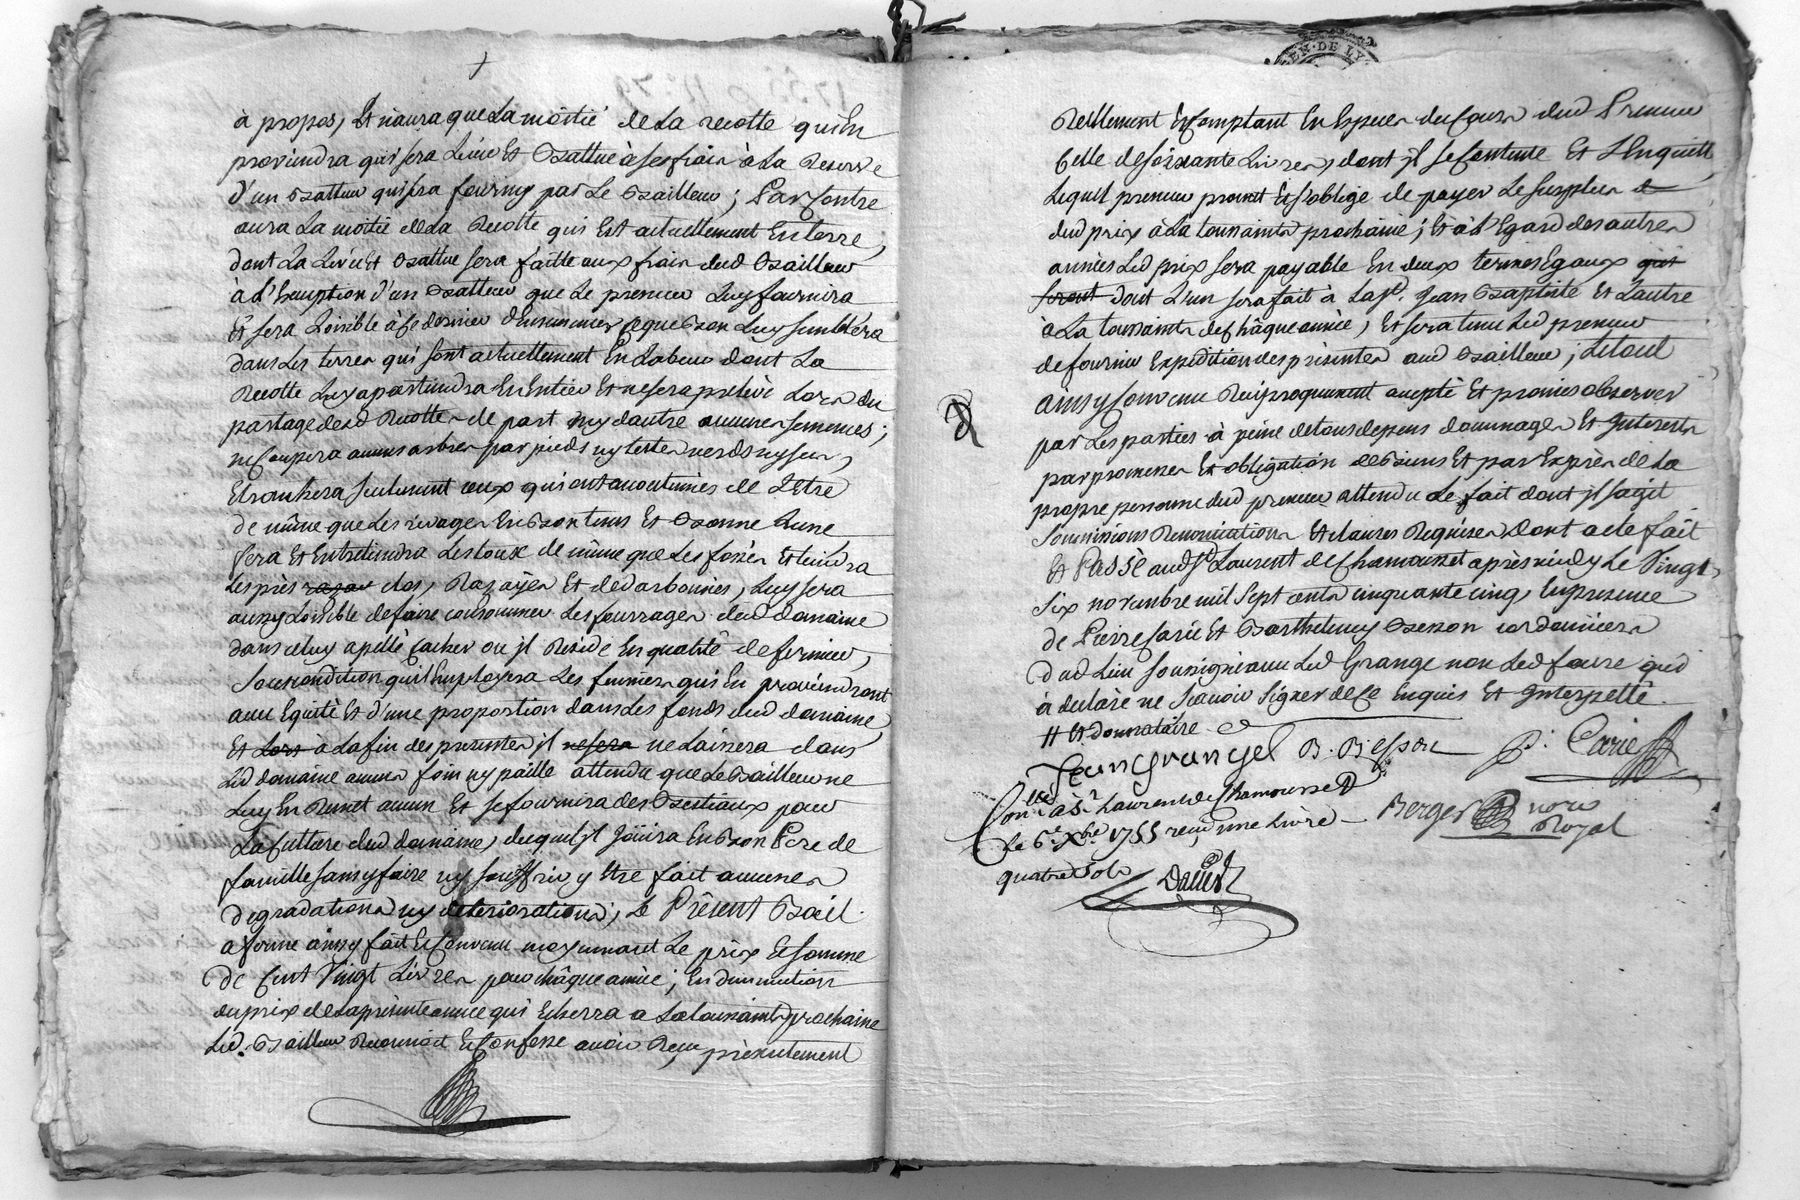 à propos, Et n'aura que La moitié de La recolte qu'En
proviendra qui sera Levée Et Battue à ses frais à La Reserve
d'un Batteur qui sera fourny par Le Bailleur; Par Contre
aura La moitié de La Recolte qui Est actuellement En terre,
dont La Levée Et Battue sera faitte aux frais dud Bailleur
à L'Exception d'un Batteur que Le preneur Luy fournira
Et sera Loisible à Ce dernier d'Ensemencer ce que Bon Luy semblera
dans Les terres qui sont actuellement En Labeur dont La
Recolte Luy apartiendra En Entier Et ne sera prelevé Lors du
partage desd Recoltes de part ny d'autre aucunes semences;
ne Coupera aucuns arbres par pieds ny teste verds ny secs,
Ebranchera seulement ceux qui ont accoutumés de L'Etre
de même que Les rivages En Bon tems Et Bonne Lune
fera Et Entretiendra Les de même que Les fossés Et tiendra
Les près clos, Razayés Et dedarbonnés, Luy sera
aussy Loisible de faire consommer Les fourrages dud domaine
dans celuy apellé ou jl Reside En qualité de fermier,
sous condition qu'il Employera Les fumiers qui En proviendront
avec Equité Et d'une proportion dans Les fonds dud domaine,
Et Lors à La fin des presentes jl ne sera ne Laissera dans
Led domaine aucuns foin ny paille attendu que Le Bailleur ne
Luy En Remet aucun Et se fournira des Bestiaux pour
La Culture dud domaine, duquel jl Joüira En Bon Pere de
famille sans y faire ny souffrir y Etre fait aucunes
degradations ny deteriorations, Le Présent Bail.
a Forme ainsy fait Et Convenu moyennant Le prix Et somme
de Cent Vingt Livres pour châque année; En diminution
du prix de La presente année qui Echerra a La toussaints prochaine
Led. Bailleur Reconnoit Et Confesse avoir Reçu présentement
Réellement Et Comptant En Especes du Cours dud Preneur
Celle de soixante Livres, dont jl se Contente Et L'En quitte,
Lequel preneur promet Et s'oblige de payer Le surplus
dud prix à La toussaints prochaine; Et à L'Egard des autres
années Led prix sera payable En deux termes Egaux qui
seront dont L'un sera fait à La st. Jean Baptiste Et L'autre
à La toussaints de châque année, Et sera tenu Led preneur
de fournir Expedition des présentes aud Bailleur; Le tout
ainsy Convenu Reciproquement accepté Et promis observer
par Les parties à peine de tous depens dommages Et Interests
par promesses Et obligation de Biens Et par Exprès de La
propre personne dud preneur attendu Le fait dont jl s'agit
Soumissions Renonciations Et clauses Requises dont acte fait
Et Passé aud St Laurent de Chamousset après midy Le Vingt
six novembre mil sept cents cinquante cinq, En presence
de Pierre Carié Et Barthelemy Besson cordonniers
dud Lieu soussignés avec Led Grange non Led faure qui
à declaré ne sçavoir signer de Ce Enquis Et Interpellé.
# Et donnataire
Jean Grangé B. Besson P. Carié
Conllé à St Laurent de Chamousset
Le 6e Xbre 1755 reçu une Livre
quatre Sols
Berger nore
Royal